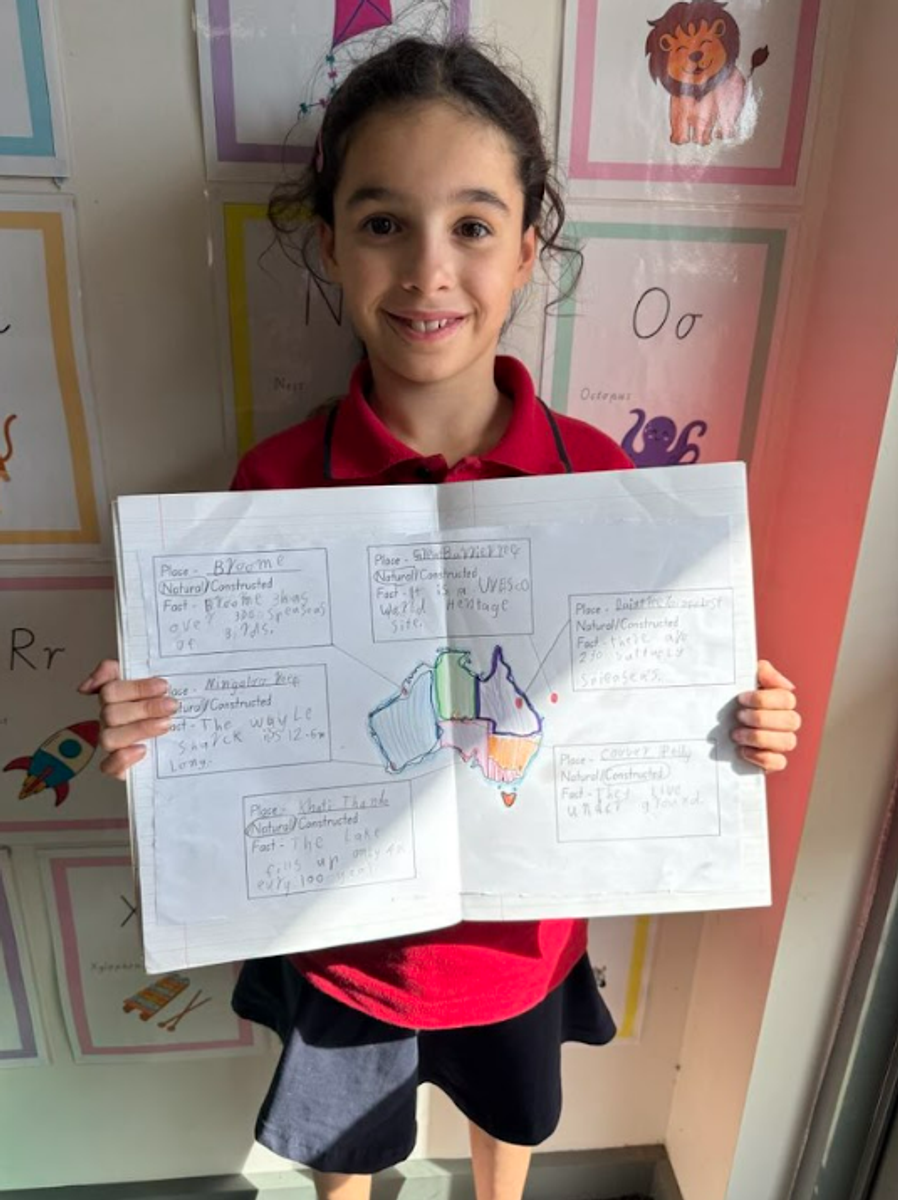 N
Nest
Oo
Octopus
Rr
X
Xylophone
Place - Broome
Natural/Constructed
Fact - Broome 3has
over 300 speaseas
of Birds.
Place -
Natural/Constructed
Fact - It is a UNESCO
World Heritage
Site.
Place -
Natural/Constructed
Fact - there are
230 buttufly
spieasers.
Place - Ningaloo Reep
Natural/Constructed
Fact - The wayle
shurck is 12.6m
Long.
Place - Coover Pedy
Natural/Constructed
Fact - They live
under ground.
Place - Khati Thanda
Natural/Constructed
Fact - The Lake
fills up only 4x
evry 100